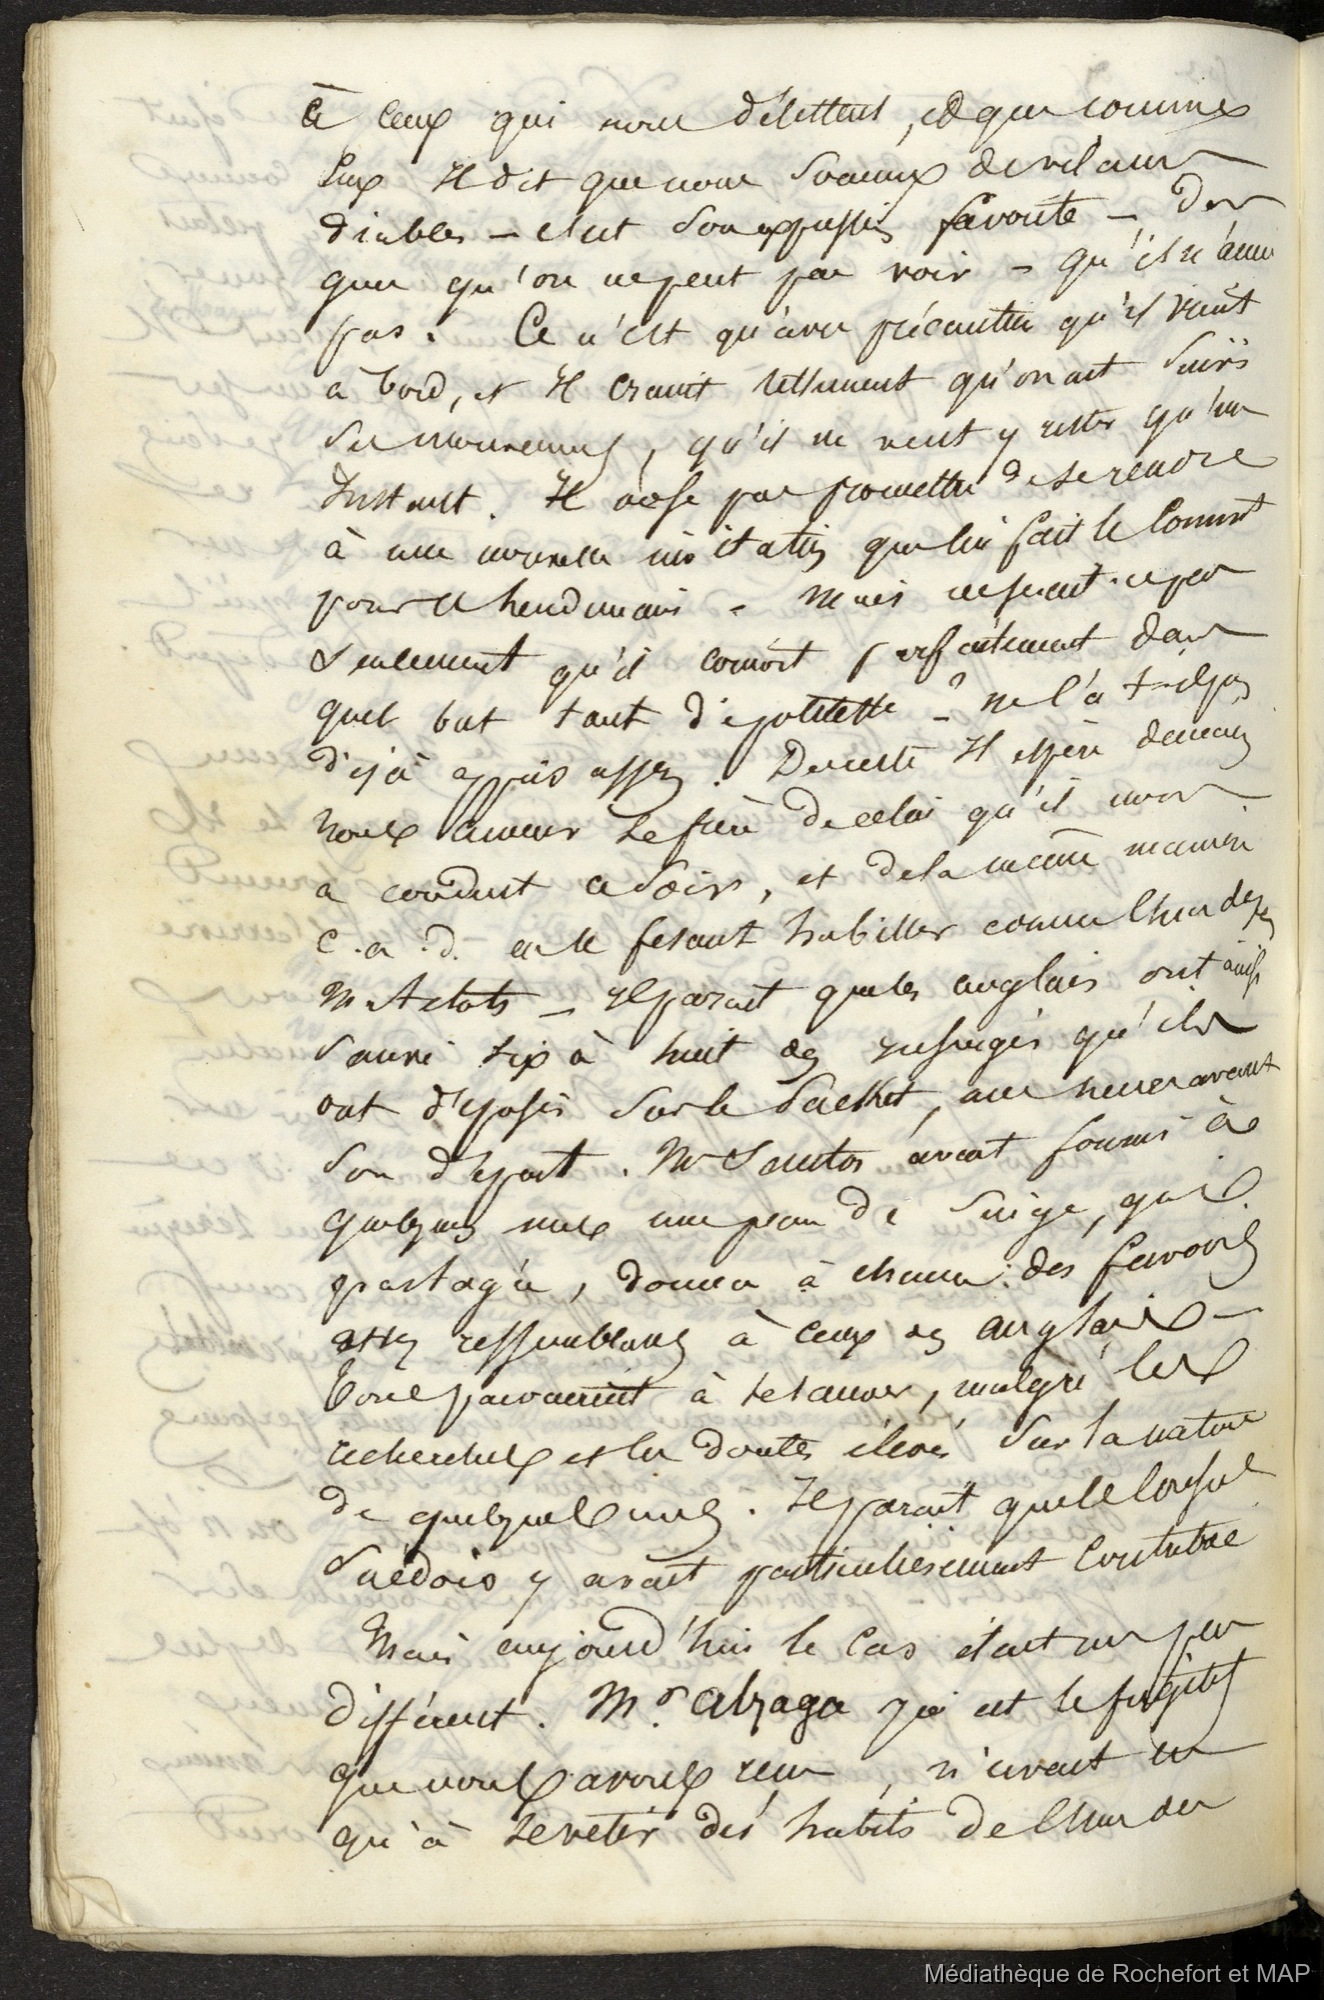 à ceux qui nous détestent, et que comme
eux Il dit que nous sommes de vilains
diables — c'est son expression favorite — des
gens qu'on ne peut pas voir — qu'il n'aime
pas. Ce n'est qu'avec précaution qu'il vient
à bord, et Il craint tellement qu'on ait suivi
ses mouvements, qu'il ne veut y rester qu'un
Instant. Il n'ose pas promettre de se rendre
à une nouvelle invitation que lui fait le Commt
pour le lendemain — Mais ne serait-ce pas
seulement qu'il connoit parfaitement dans
quel but tant de politesse — ? ne l'a t-il pas
déjà appris assez. Du reste Il espère demain
nous amener le frère de celui qu'il nous
a conduit ce soir, et de la même manière
c.a.d. en le fesant habiller comme l'un de ses
Matelots — Il parait que les anglais ont ainsi
sauvé six à huit des refugiés qu'ils
ont déposés sur le Packet, une heure avant
son départ. Mr Santos avait fourni à
quelques uns une peau de singe, qui
partagée, donna à chacun des favoris
assez ressemblans à ceux des anglais —
Tous parvinrent à se sauver, malgré les
recherches et les doutes élevés sur la nature
de quelques uns. Il parait que le Consul
Suédois y avait particulièrement contribué
Mais aujourd'hui le cas était un peu
différent. Mr. Alzaga qui est le fugitif
que nous avons reçu, n'avait eu
qu'à se vetir des habits de l'un des